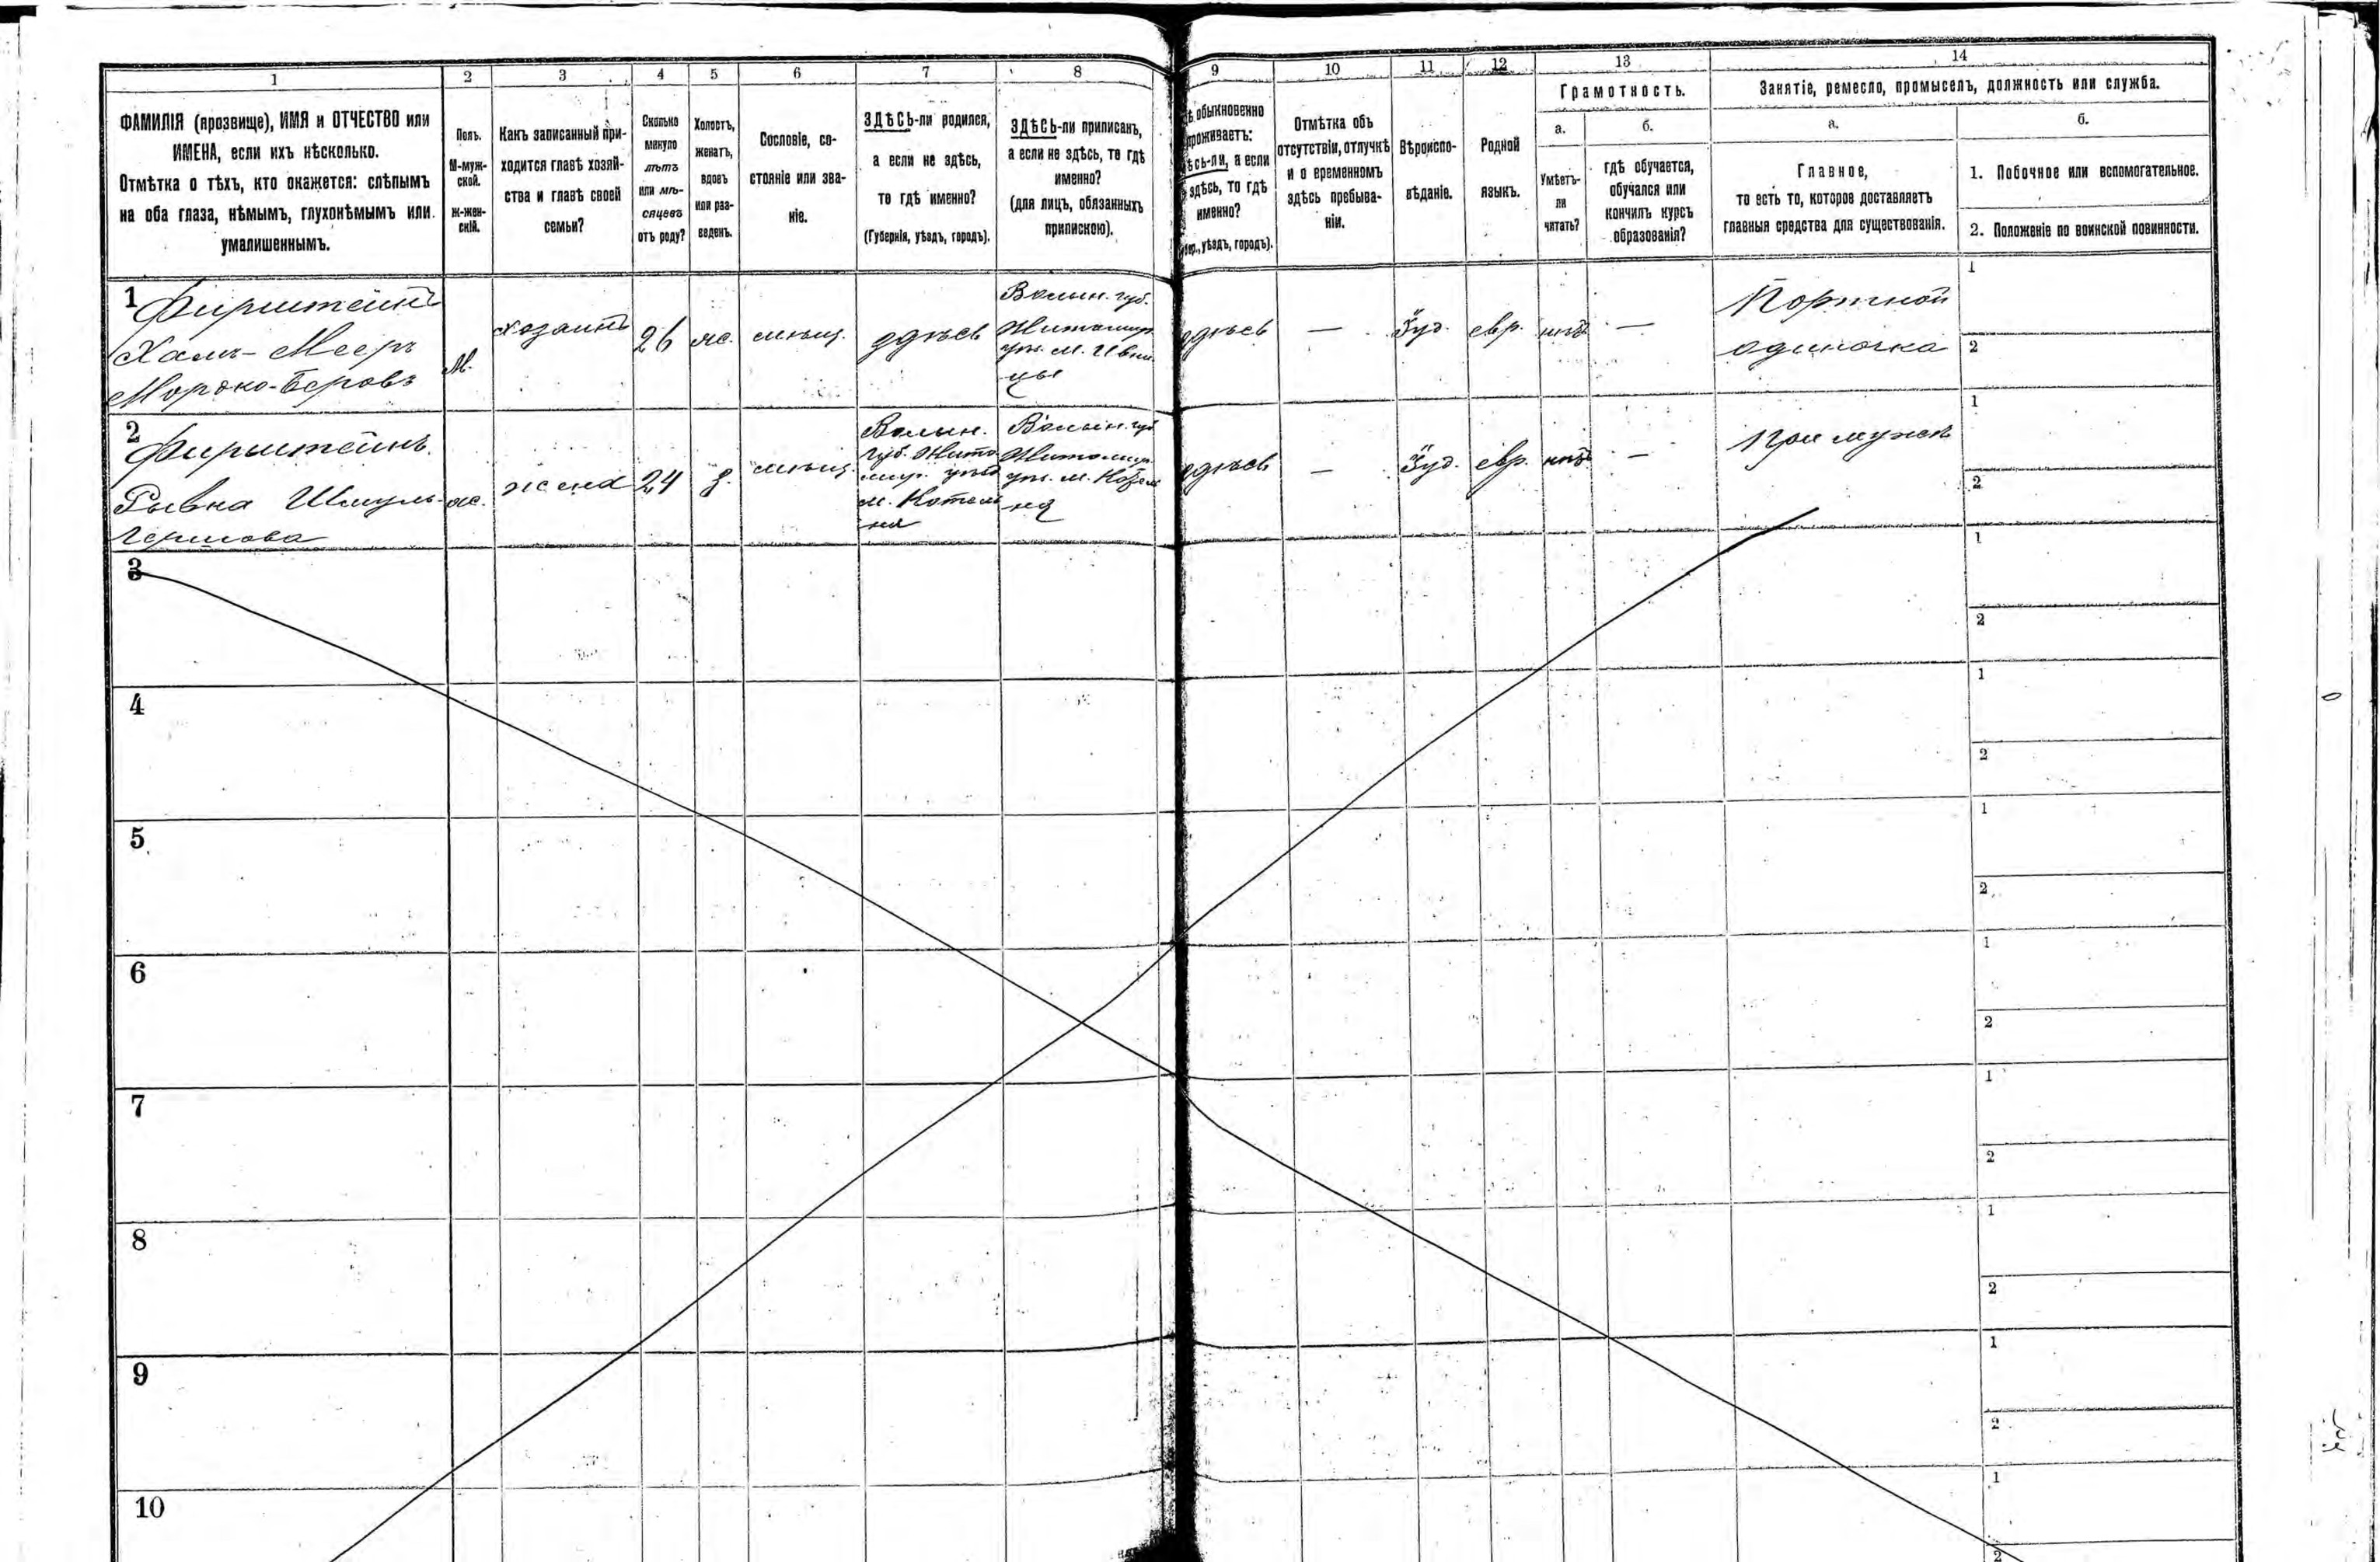 1 2 3 4 5 6 7 8 9 10 11 12 13 14
ФАМИЛІЯ (прозвище), ИМЯ и ОТЧЕСТВО или
ИМЕНА, если ихъ нѣсколько.
Отмѣтка о тѣхъ, кто окажется: слѣпымъ
на оба глаза, нѣмымъ, глухонѣмымъ или
умалишеннымъ.
Полъ.
М-муж-
ской.
ж-жен-
скій.
Какъ записанный при-
ходится главѣ хозяй-
ства и главѣ своей
семьи?
Сколько
минуло
лѣтъ
или мѣ-
сяцевъ
отъ роду?
Холостъ,
женатъ,
вдовъ
или раз-
веденъ.
Сословіе, со-
стояніе или зва-
ніе.
ЗДѢСЬ-ли родился,
а если не здѣсь,
то гдѣ именно?
(Губернія, уѣздъ, городъ).
ЗДѢСЬ-ли приписанъ,
а если не здѣсь, то гдѣ
именно?
(для лицъ, обязанныхъ
припискою).
обыкновенно
проживаетъ:
а если
здѣсь, то гдѣ
именно?
уѣздъ, городъ).
Отмѣтка объ
отсутствіи, отлучкѣ
и о временномъ
здѣсь пребыва-
ніи.
Вѣроиспо-
вѣданіе.
Родной
языкъ.
Грамотность.
а.
Умѣетъ-
ли
читать?
б.
гдѣ обучается,
обучался или
кончилъ курсъ
образованія?
Занятіе, ремесло, промыселъ, должность или служба.
а.
Главное,
то есть то, которое доставляетъ
главныя средства для существованія.
б.
1. Побочное или вспомогательное.
2. Положеніе по воинской повинности.
1
Фирштейнъ
Хаим-Мееръ
Мордко-Беровъ
М.
хозаинъ
26
ж.
мѣщ.
здѣсь
Волын. губ.
Житомир.
уѣ. м. Ивни-
цы
здѣсь
—
Іуд.
евр.
нѣтъ
—
Портной
одиночка
1
2
2
Фирштейнъ
Рывка Шмуль-
Гершова
ж.
жена
24
з.
мѣщ.
Волын.
губ. Жито
мир. уѣзд
м. Котель
ня
Волын. губ.
Житомир.
уѣ. м. Котель
ня
здѣсь
—
Іуд.
евр.
нѣтъ
—
При мужѣ
1
2
3
1
2
4
1
2
5
1
2
6
1
2
7
1
2
8
1
2
9
1
2
10
1
2